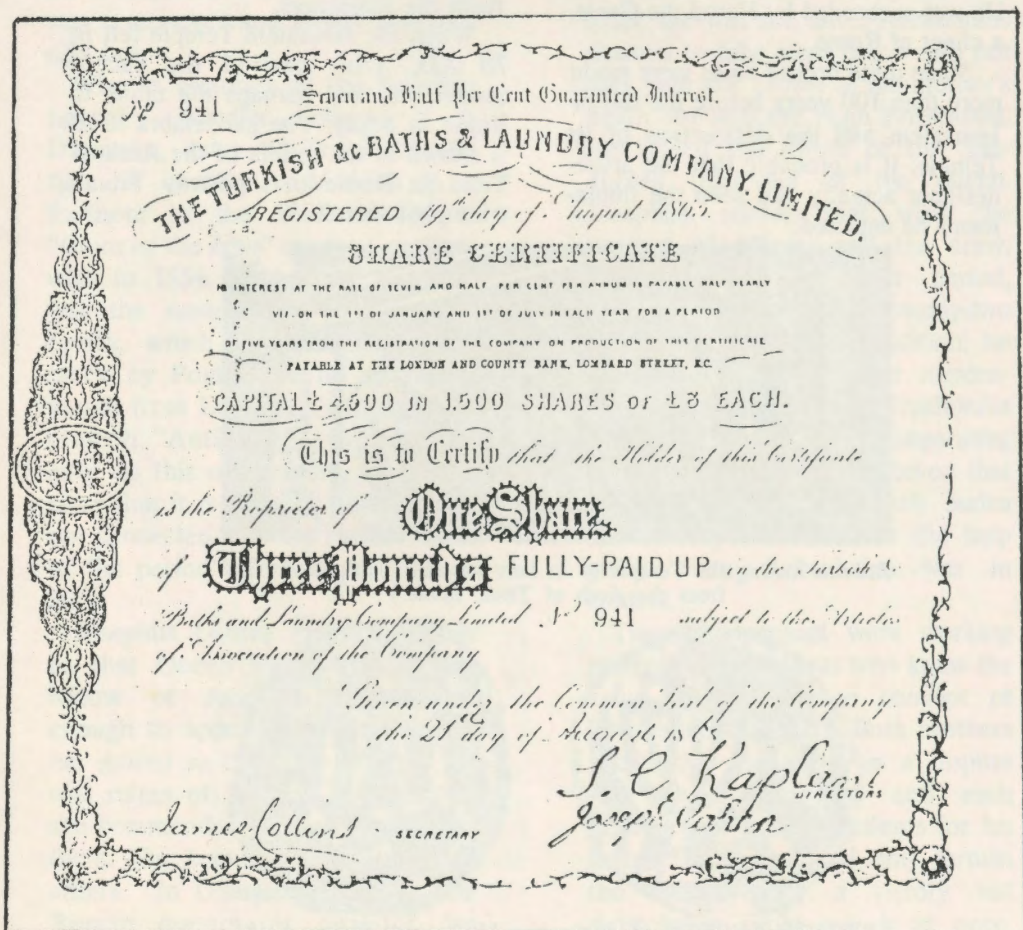 No 941 Seven and Half Per Cent Guaranteed Interest.
THE TURKISH &c BATHS & LAUNDRY COMPANY, LIMITED.
REGISTERED 19th day of August, 1865.
SHARE CERTIFICATE
INTEREST AT THE RATE OF SEVEN AND HALF PER CENT PER ANNUM IS PAYABLE HALF YEARLY
VIZ. ON THE 1ST OF JANUARY AND 1ST OF JULY IN EACH YEAR FOR A PERIOD
OF FIVE YEARS FROM THE REGISTRATION OF THE COMPANY ON PRODUCTION OF THIS CERTIFICATE
PAYABLE AT THE LONDON AND COUNTY BANK, LOMBARD STREET, E.C.
CAPITAL £ 4,500 IN 1,500 SHARES OF £3 EACH.
This is to Certify that the Holder of this Certificate
is the Proprietor of One Share
of Three Pounds FULLY-PAID UP in the Turkish &c
Baths and Laundry Company Limited No 941 subject to the Articles
of Association of the Company
Given under the Common Seal of the Company
the 21st day of August, 186
S. C. Kaplan
DIRECTORS
Joseph Cohen
James Collins SECRETARY